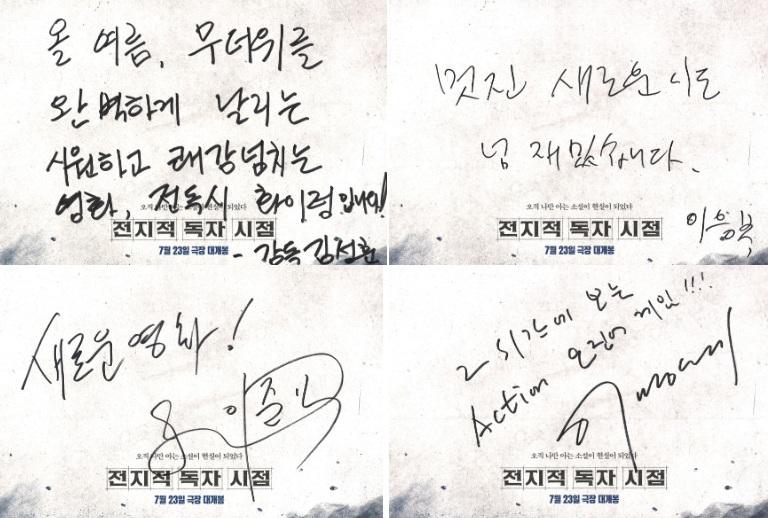 올 여름, 무더위를
완벽하게 날리는
시원하고 쾌감넘치는
영화, 전독시 화이팅입니다!
오직 나만 아는 소설이 현실이 되었다
전지적 독자 시점
7월 23일 극장 대개봉
- 감독 김선훈
멋진 새로운 시도
넘 재밌습니다.
오직 나만 아는 소설이 현실이 되었다
전지적 독자 시점
7월 23일 극장 대개봉
새로운 영화!
오직 나만 아는 소설이 현실이 되었다
전지적 독자 시점
7월 23일 극장 대개봉
2시간에 보는
Action 오징어 게임!!!
오직 나만 아는 소설이 현실이 되었다
전지적 독자 시점
7월 23일 극장 대개봉